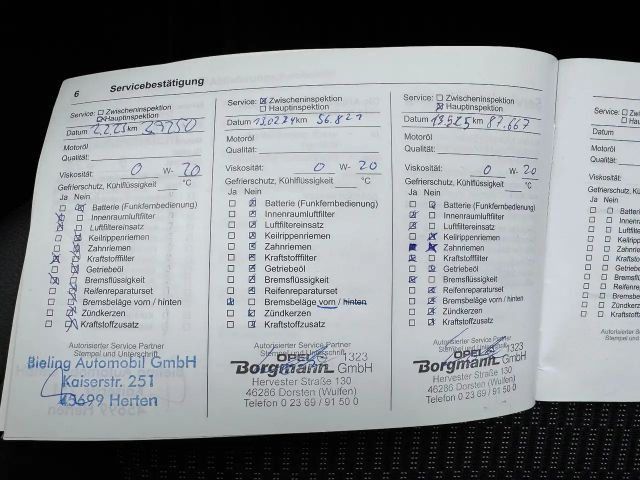 6 Servicebestätigung
Service: Zwischeninspektion
Hauptinspektion
Datum 2.2.23 km 29250
Motoröl
Qualität:
Viskosität: 0 W- 20
Gefrierschutz, Kühlflüssigkeit °C
Ja Nein
Batterie (Funkfernbedienung)
Innenraumluftfilter
Luftfiltereinsatz
Keilrippenriemen
Zahnriemen
Kraftstofffilter
Getriebeöl
Bremsflüssigkeit
Reifenreparaturset
Bremsbeläge vorn / hinten
Zündkerzen
Kraftstoffzusatz
Autorisierter Service Partner
Stempel und Unterschrift
Bieling Automobil GmbH
Kaiserstr. 251
45699 Herten
Service: Zwischeninspektion
Hauptinspektion
Datum 13.02.24 km 56.821
Motoröl
Qualität:
Viskosität: 0 W- 20
Gefrierschutz, Kühlflüssigkeit °C
Ja Nein
Batterie (Funkfernbedienung)
Innenraumluftfilter
Luftfiltereinsatz
Keilrippenriemen
Zahnriemen
Kraftstofffilter
Getriebeöl
Bremsflüssigkeit
Reifenreparaturset
Bremsbeläge vorn / hinten
Zündkerzen
Kraftstoffzusatz
Autorisierter Service Partner
Stempel und Unterschrift
OPEL 1323
Borgmann GmbH
Hervester Straße 130
46286 Dorsten (Wulfen)
Telefon 0 23 69 / 91 50 0
Service: Zwischeninspektion
Hauptinspektion
Datum km 87.667
Motoröl
Qualität:
Viskosität: 0 W- 20
Gefrierschutz, Kühlflüssigkeit °C
Ja Nein
Batterie (Funkfernbedienung)
Innenraumluftfilter
Luftfiltereinsatz
Keilrippenriemen
Zahnriemen
Kraftstofffilter
Getriebeöl
Bremsflüssigkeit
Reifenreparaturset
Bremsbeläge vorn / hinten
Zündkerzen
Kraftstoffzusatz
Autorisierter Service Partner
Stempel und Unterschrift
OPEL 1323
Borgmann GmbH
Hervester Straße 130
46286 Dorsten (Wulfen)
Telefon 0 23 69 / 91 50 0
Service:
Datum
Motoröl
Qualität:
Viskosität:
Gefrierschutz
Ja Nein